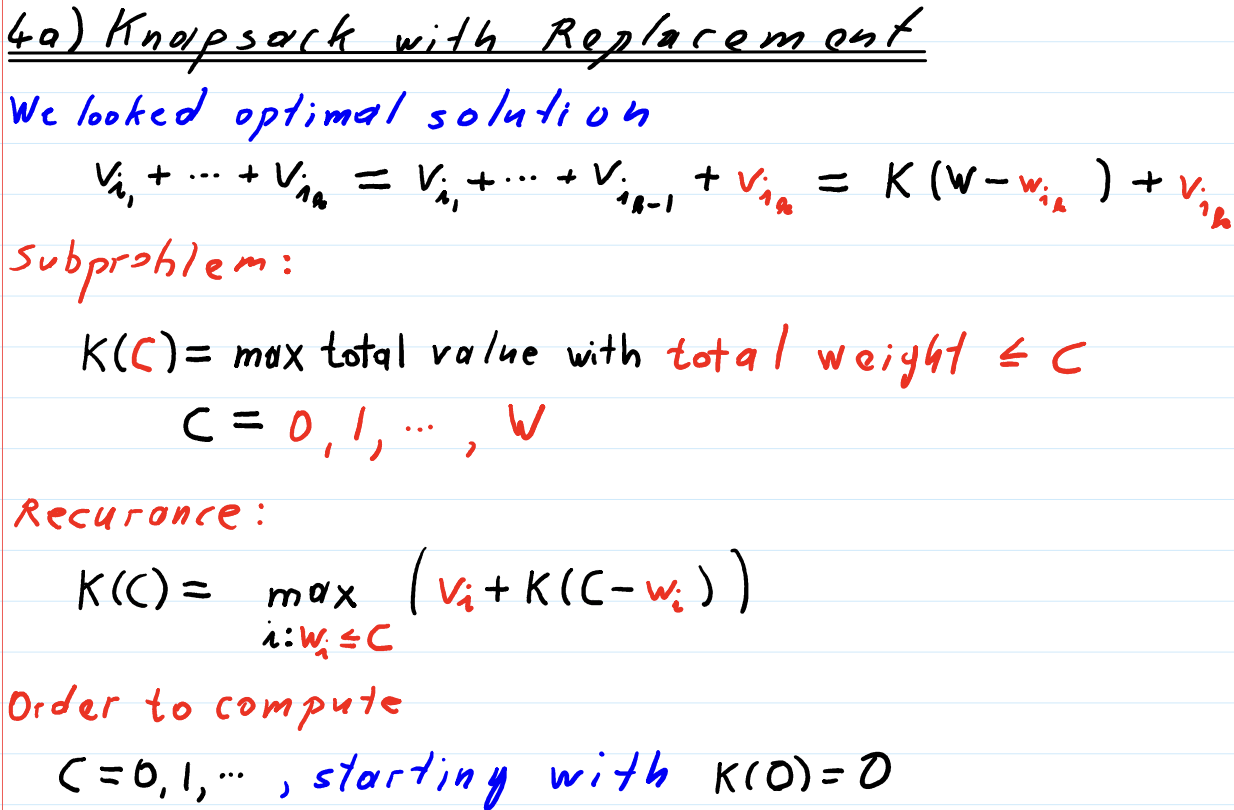 4a) Knapsack with Replacement
We looked optimal solution
v_{i_1} + ... + v_{i_k} = v_{i_1} + ... + v_{i_{k-1}} + v_{i_k} = K(W - w_{i_k}) + v_{i_k}
Subproblem:
K(C) = max total value with total weight ≤ C
C = 0, 1, ..., W
Recurance:
K(C) = max (v_i + K(C - w_i))
i: w_i ≤ C
Order to compute
C = 0, 1, ..., starting with K(0) = 0